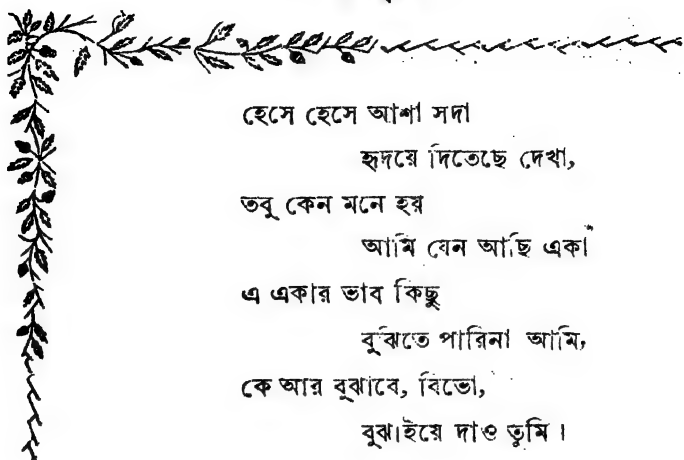 হেসে হেসে আশা সদা
হৃদয়ে দিতেছে দেখা,
তবু কেন মনে হয়
আমি যেন আছি একা
এ একার ভাব কিছু
বুঝিতে পারিনা আমি,
কে আর বুঝাবে, বিভো,
বুঝাইয়ে দাও তুমি।